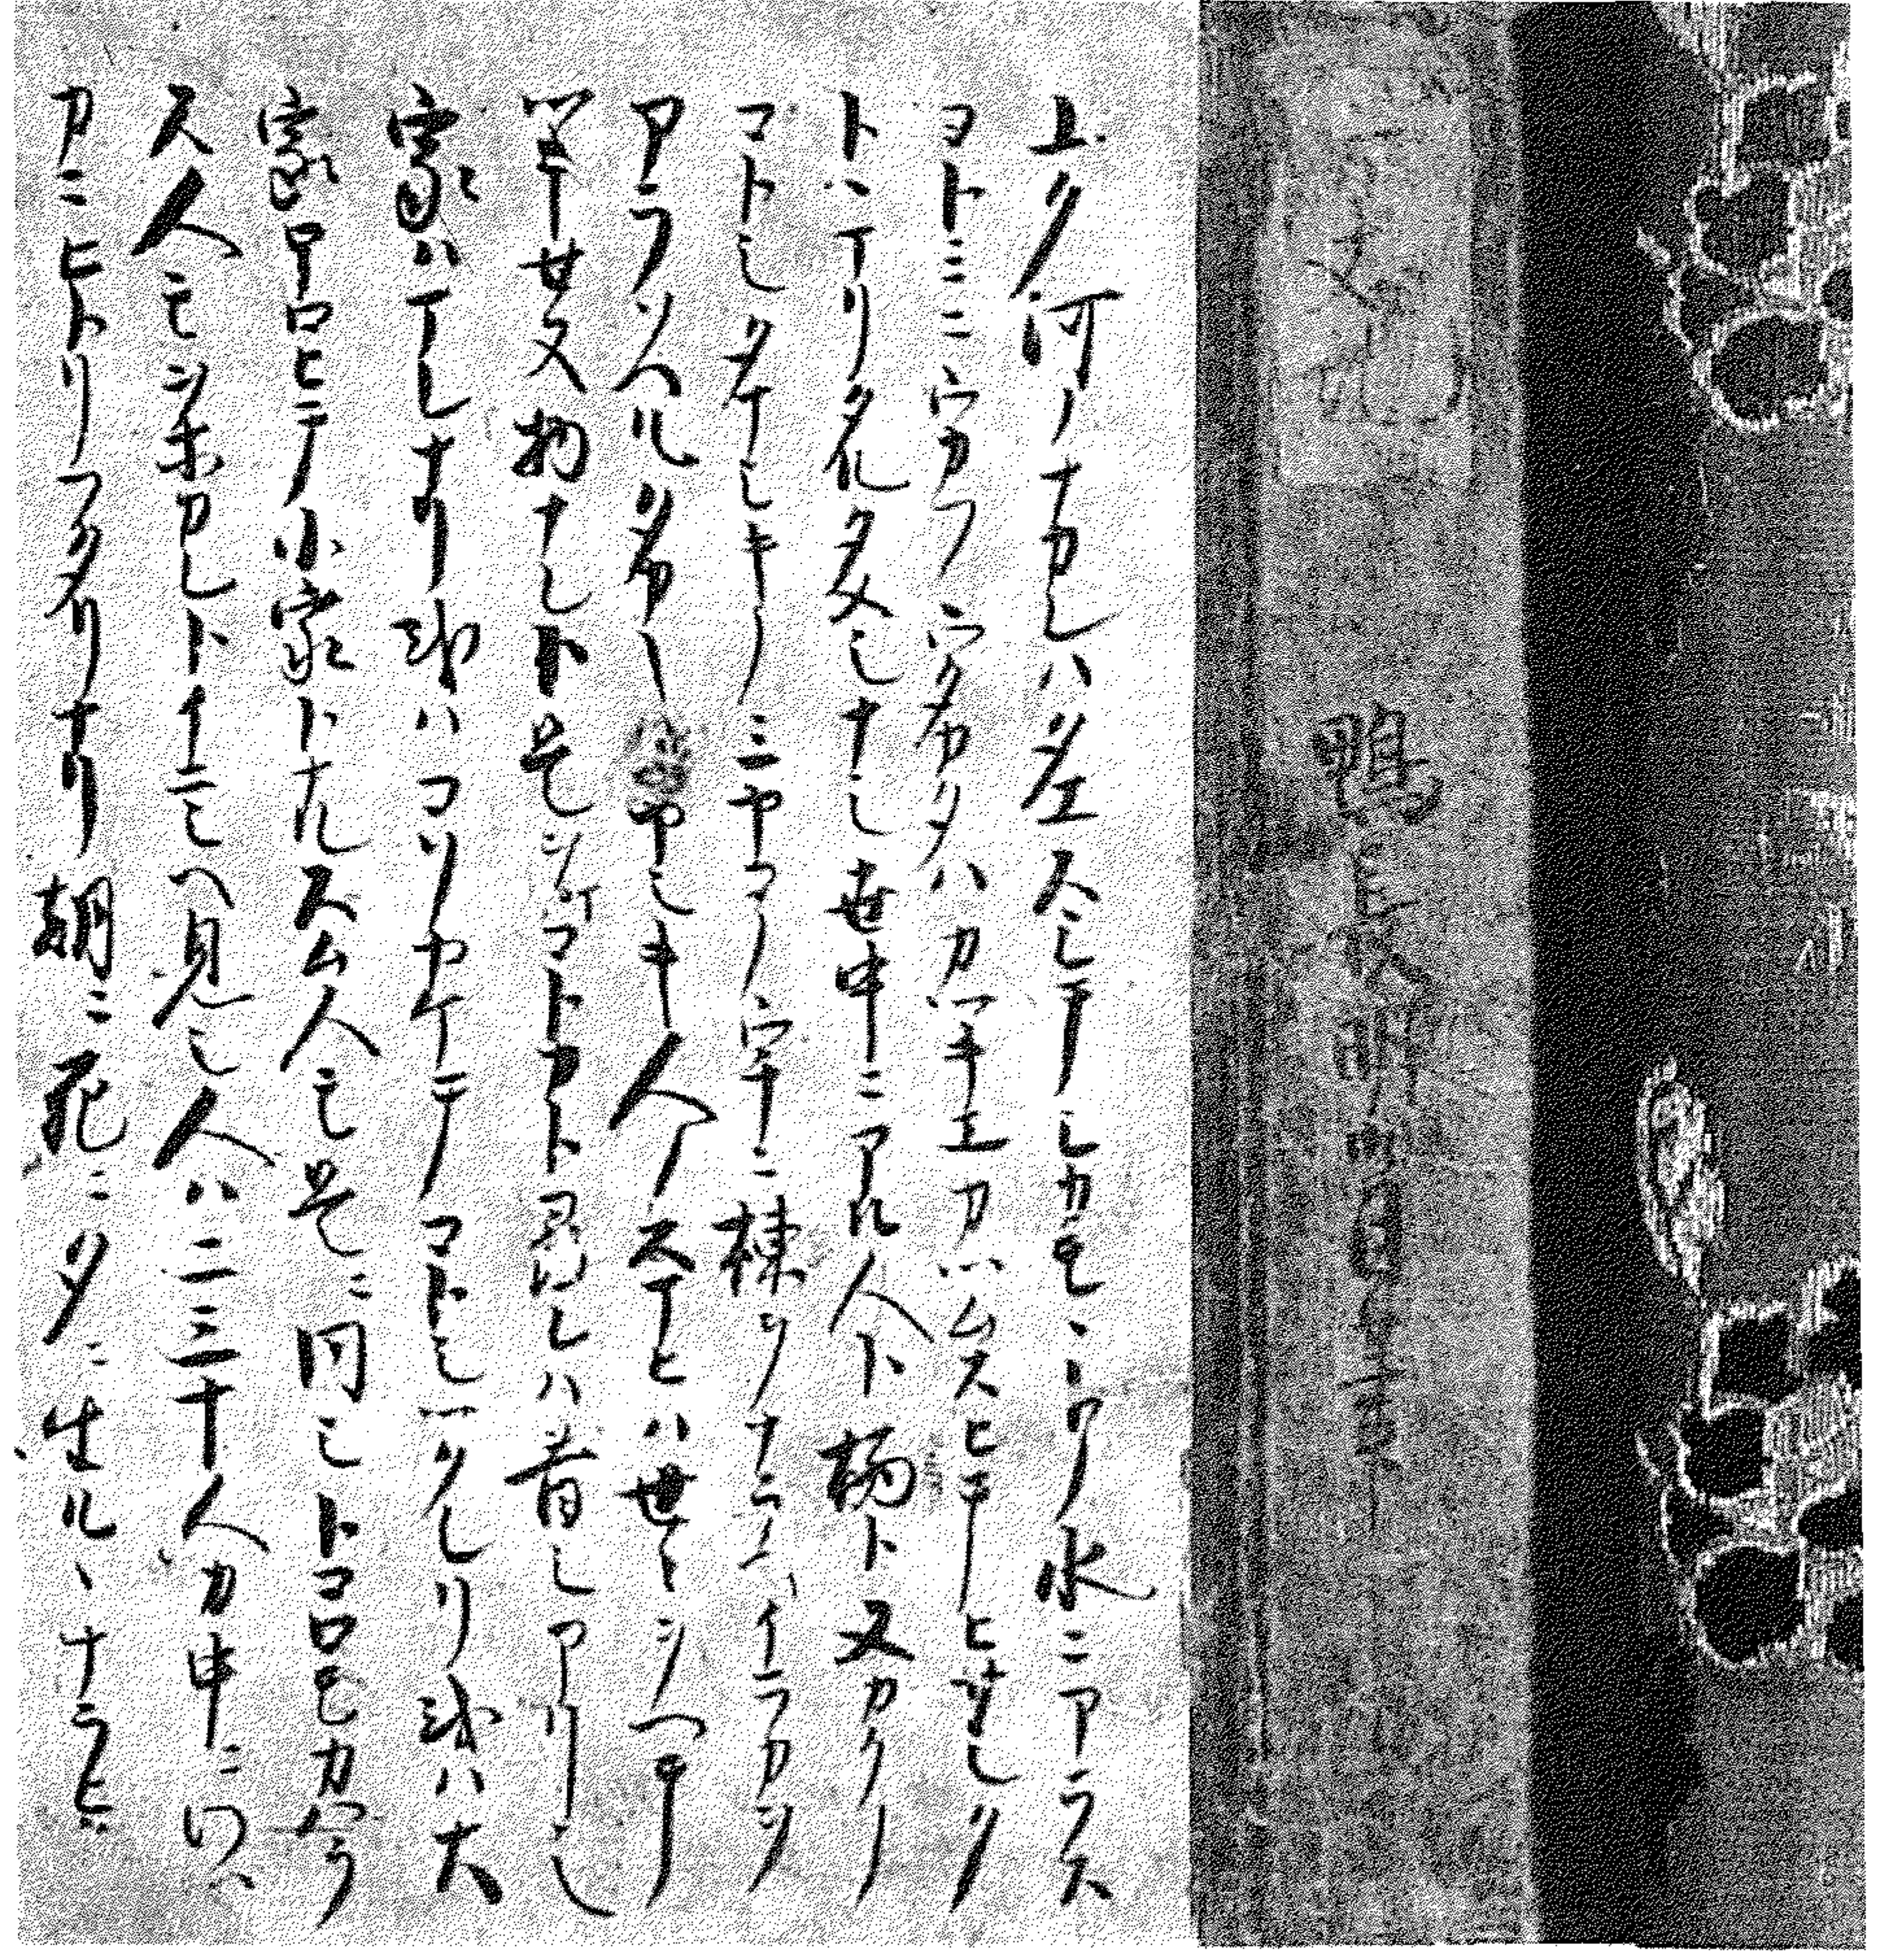 鴨長明
ユク河ノナカレハタエスシテシカモヽトノ水ニアラス
ヨトミニウカフウタカタハカツキエカツムスヒテヒサシク
トヽマリタルタメシナシ世中ニアル人ト栖ト又カクノ
コトシタマシキノミヤコノウチニ棟ヲナラヘイラカヲ
アラソヘルタカキイヤシキ人ノスマヒハ世々ヲヘテ
ツキセヌ物ナレト是ヲマコトカト尋レハ昔シアリシ
家ハマレナリ或ハコソヤケテコトシツクレリ或ハ大
家ホロヒテ小家トナルスム人モ是ニ同シトコロモカハラ
ス人モヲホカレトイニシヘ見シ人ハ二三十人カ中ニワツ
カニヒトリフタリナリ朝ニ死ニ夕ニ生ルヽナラヒ